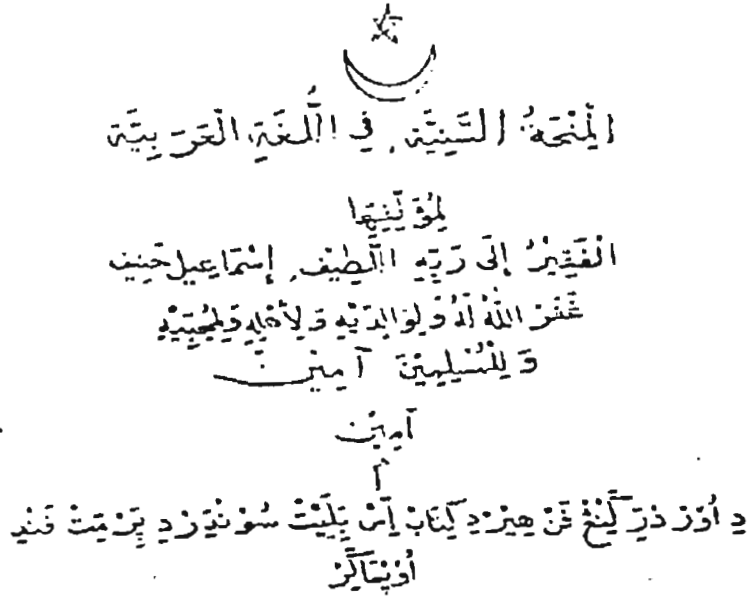 الْمِنْحَةُ السَّنِيَّة، فِي اللُّغَةِ الْعَرَبِيَّة
لِمُؤَلِّفِهَا
الْفَقِيْرُ إِلَى رَبِّهِ اللَّطِيْف، إِسْمَاعِيل حَنِيف
غَفَرَ اللّٰهُ لَهُ وَلِوَالِدَيْهِ وَلِأَهْلِهِ وَلِمُحِبِّيْهِ
وَلِلْمُسْلِمِيْنَ آمِيْنَ
آمِيْن
أ
دِ اُوَرْ دْرِكِّنْغْ فَنْ هِيْرْدِ كِتَابْ اِسْ بِلِيْتْ سُوْنْدِرْ دِ پِرْمِتْ فَنْدِ
اُوْپْمَاكِرْ